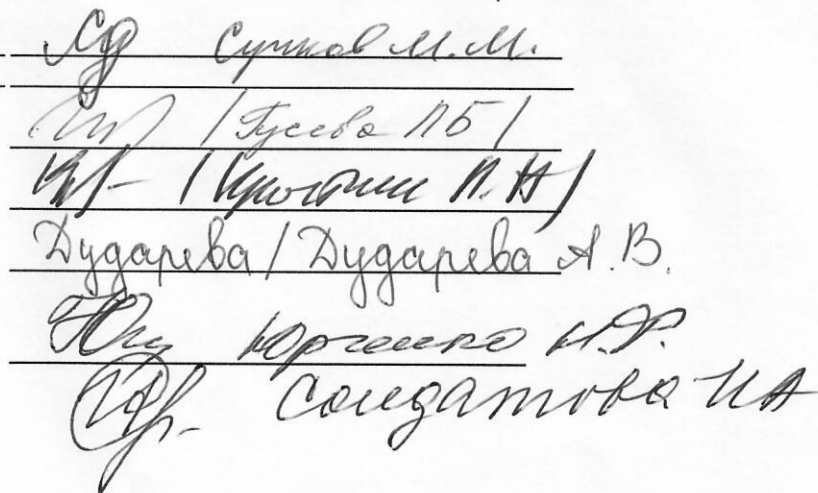 Сучков М.М.
/Гусева Л Б/
/Кростин П. Н/
Дударева / Дударева А. В.
Юрченко Н.Ф.
Солдатова И А